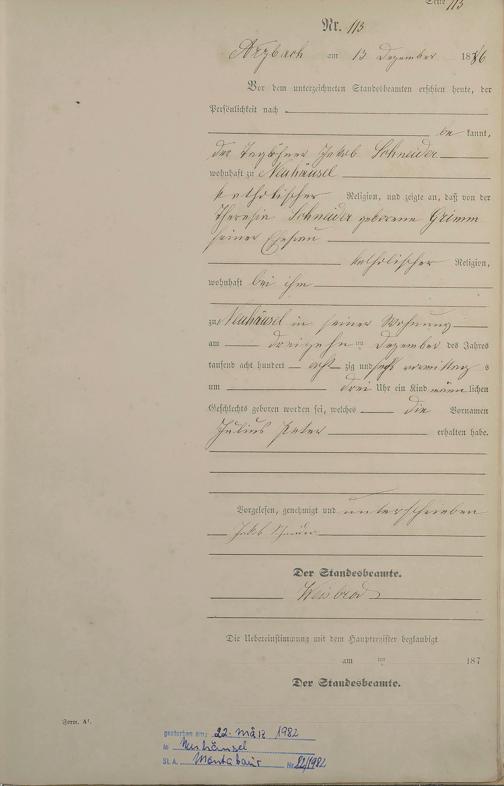 Seite 113
Nr. 113
Arzbach am 13 Dezember 1886
Vor dem unterzeichneten Standesbeamten erschien heute, der
Persönlichkeit nach
be kannt,
der Taglöhner Jakob Schneider
wohnhaft zu Neuhäusel
katholischer Religion, und zeigte an, daß von der
Theresia Schneider geborene Grimm
seiner Ehefrau
katholischer Religion,
wohnhaft bei ihm
zu Neuhäusel in seiner Wohnung
am dreizehn ten Dezember des Jahres
tausend acht hundert acht zig und sechs vormittags
um drei Uhr ein Kind männ lichen
Geschlechts geboren worden sei, welches die Vornamen
Julius Peter erhalten habe.
Vorgelesen, genehmigt und unterschrieben
Jakob Schneider
Der Standesbeamte.
Weisbrod
Die Uebereinstimmung mit dem Hauptregister beglaubigt
am ten 187
Der Standesbeamte.
Form. A¹.
gestorben am: 22. März 1982
in Neuhäusel
St.A. Montabaur Nr. 22/1982